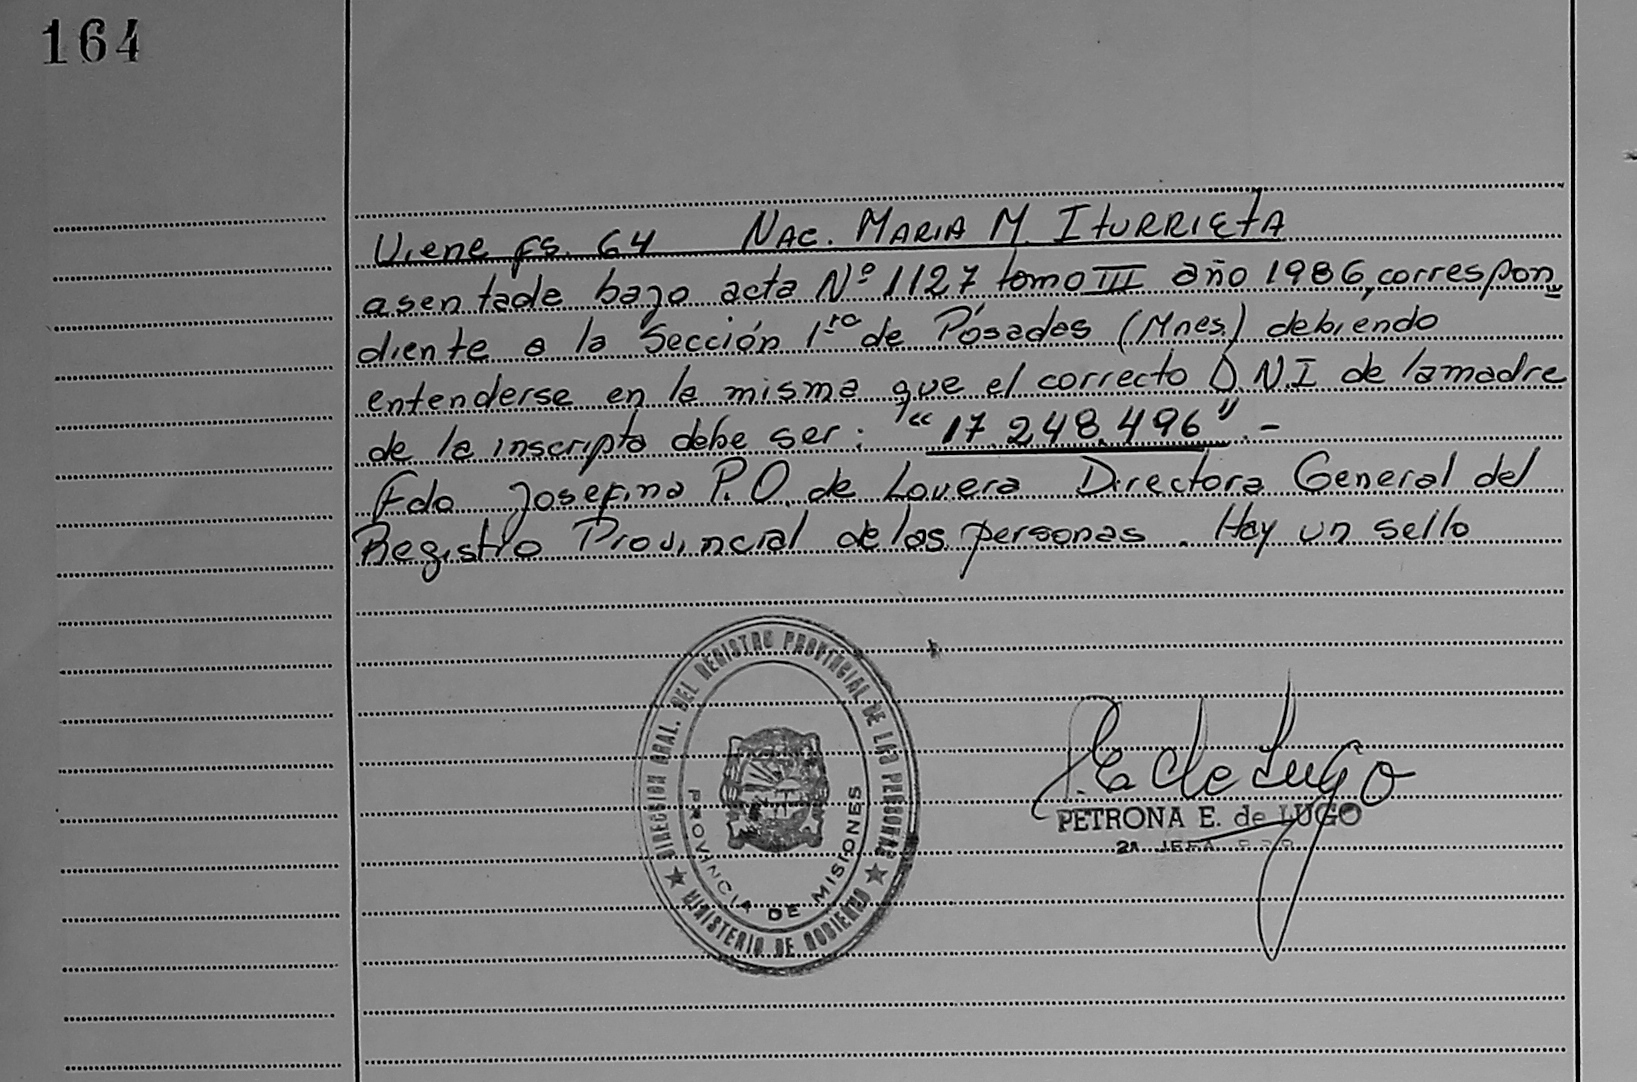 164
Viene fs. 64 NAC. MARIA M. ITURRIETA
asentade bajo acta Nº 1127 tomo III año 1986, correspon
diente a la Sección 1ra de Posadas (Mnes.) debiendo
entenderse en la misma que el correcto D.N.I de la madre
de la inscripta debe ser: "17.248.496".-
Fdo Josefina P.O. de Lovera Directora General del
Registro Provincial de las personas. Hay un sello
DIRECCION GRAL. DEL REGISTRO PROVINCIAL DE LAS PERSONAS
PROVINCIA DE MISIONES
MINISTERIO DE GOBIERNO
P.E. de Lugo
PETRONA E. de LUGO
2a JEFA